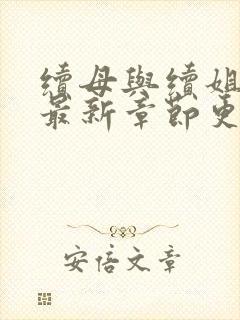 續母與續姐
最新章節更
安倍文章